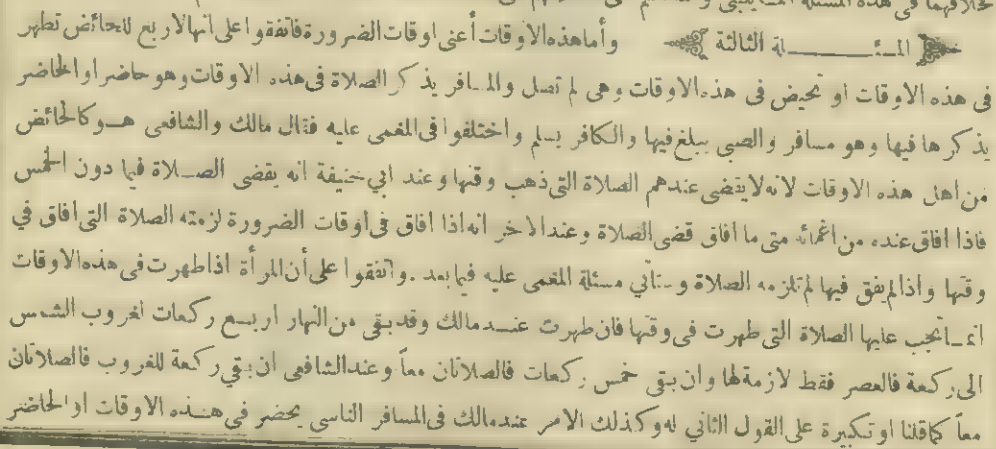 خلافهما في هذه المسئلة
المسئلة الثالثة وأما هذه الاوقات أعنى اوقات الضرورة فاتفقوا على انها لاربع للحائض تطهر
فى هذه الاوقات او تحيض فى هذه الاوقات وهى لم تصل والمسافر يذكر الصلاة فى هذه الاوقات وهو حاضر او الحاضر
يذكرها فيها وهو مسافر والصبى يبلغ فيها والكافر يسلم واختلفوا فى المغمى عليه فقال مالك والشافعى هو كالحائض
من اهل هذه الاوقات لانه لا يقضى عندهم الصلاة التى ذهب وقتها وعند ابي حنيفة انه يقضى الصلاة فيما دون الخمس
فاذا افاق عنده من اغمائه متى ما افاق قضى الصلاة وعند الاخر انه اذا افاق فى اوقات الضرورة لزمته الصلاة التى افاق في
وقتها واذا لم يفق فيها لم تلزمه الصلاة وستأتي مسئلة المغمى عليه فيما بعد . واتفقوا على أن المرأة اذا طهرت فى هذه الاوقات
انما تجب عليها الصلاة التى طهرت فى وقتها فان طهرت عند مالك وقد بقى من النهار اربع ركعات لغروب الشمس
الى ركعة فالعصر فقط لازمة لها وان بقى خمس ركعات فالصلاتان معاً وعند الشافعى ان بقي ركعة للغروب فالصلاتان
معاً كما قلنا او تكبيرة على القول الثاني له وكذلك الامر عند مالك فى المسافر الناسى يحضر فى هذه الاوقات او الحاضر